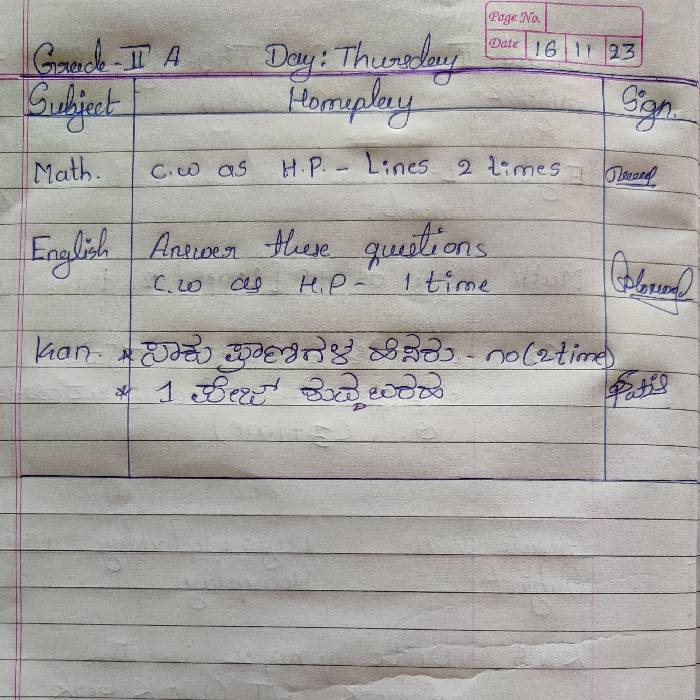 Page No.
Date 16 11 23
Grade - II A Day: Thursday
Subject Homeplay Sign.
Math. C.W as H.P. - Lines 2 times
English Answer these questions
C.W as H.P - 1 time
Kan. * ಸಾಕು ಪ್ರಾಣಿಗಳ ಹೆಸರು - no (2 time)
* 1 ಪೇಜ್ ಶುದ್ಧಬರಹ